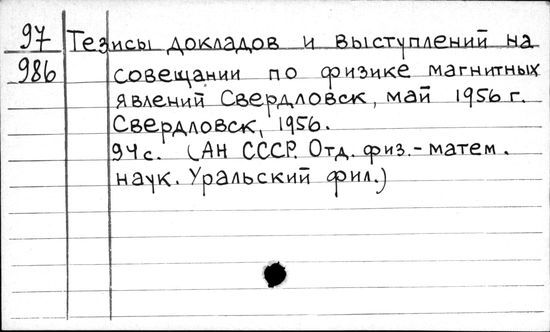 97 Тезисы докладов и выступлений на
986 совещании по физике магнитных
явлений Свердловск, май 1956 г.
Свердловск, 1956.
94 с. (АН СССР. Отд. физ.-матем.
наук. Уральский фил.)